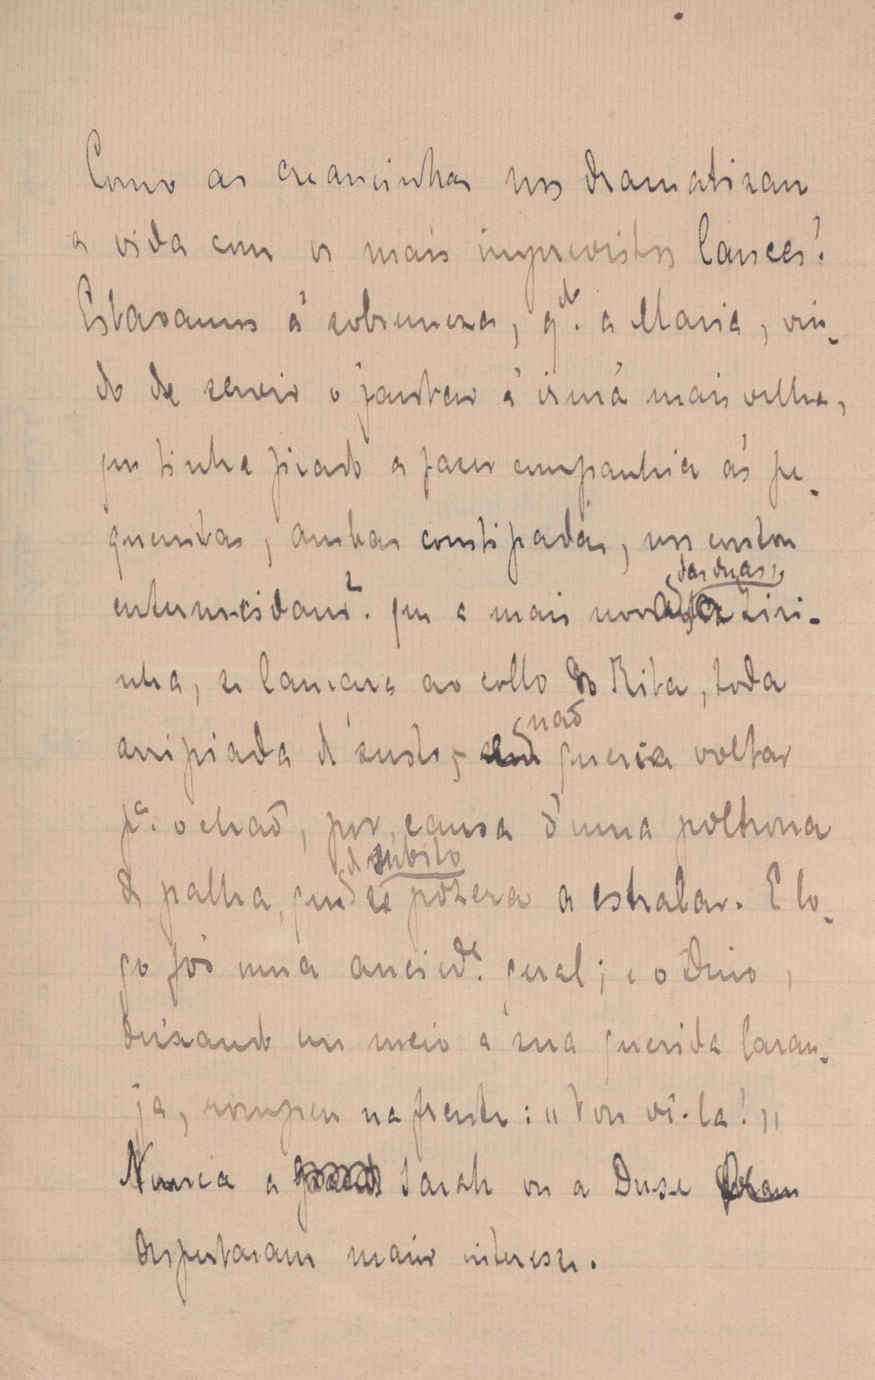 Como as creancinhas nos dramatizam
a vida com os mais imprevistos lances!
Estavamos á sobremeza, q.do a Maria, vin-
do de servir o jantar á irmã mais velha,
que tinha ficado a fazer companhia ás pe-
quenitas, ambas constipadas, nos contou
das duas,
enternecidam.e que a mais nova Ziri-
nha, se lançara ao collo da Rita, toda
não
arripiada de susto, queria voltar
p.a o chão, por causa d'uma poltrona
de subito
de palha, que se pozera a estralar. E lo-
go foi uma ancied.e geral; e o Dino,
deixando em meio a sua querida laran-
ja, rompeu na frente: "Vou vê-la!"
Nunca a Sarah ou a Duse
despertaram maior interesse.